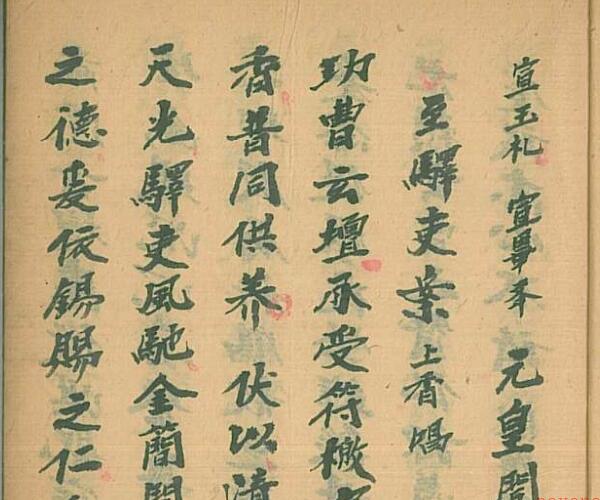 宣玉礼 宣尊奉 元皇開
至驛吏案上香唱
功曹云壇承受符檄
香普同供养 伏以清
天光驛吏風馳金蕳
之德爰依錫賜之仁